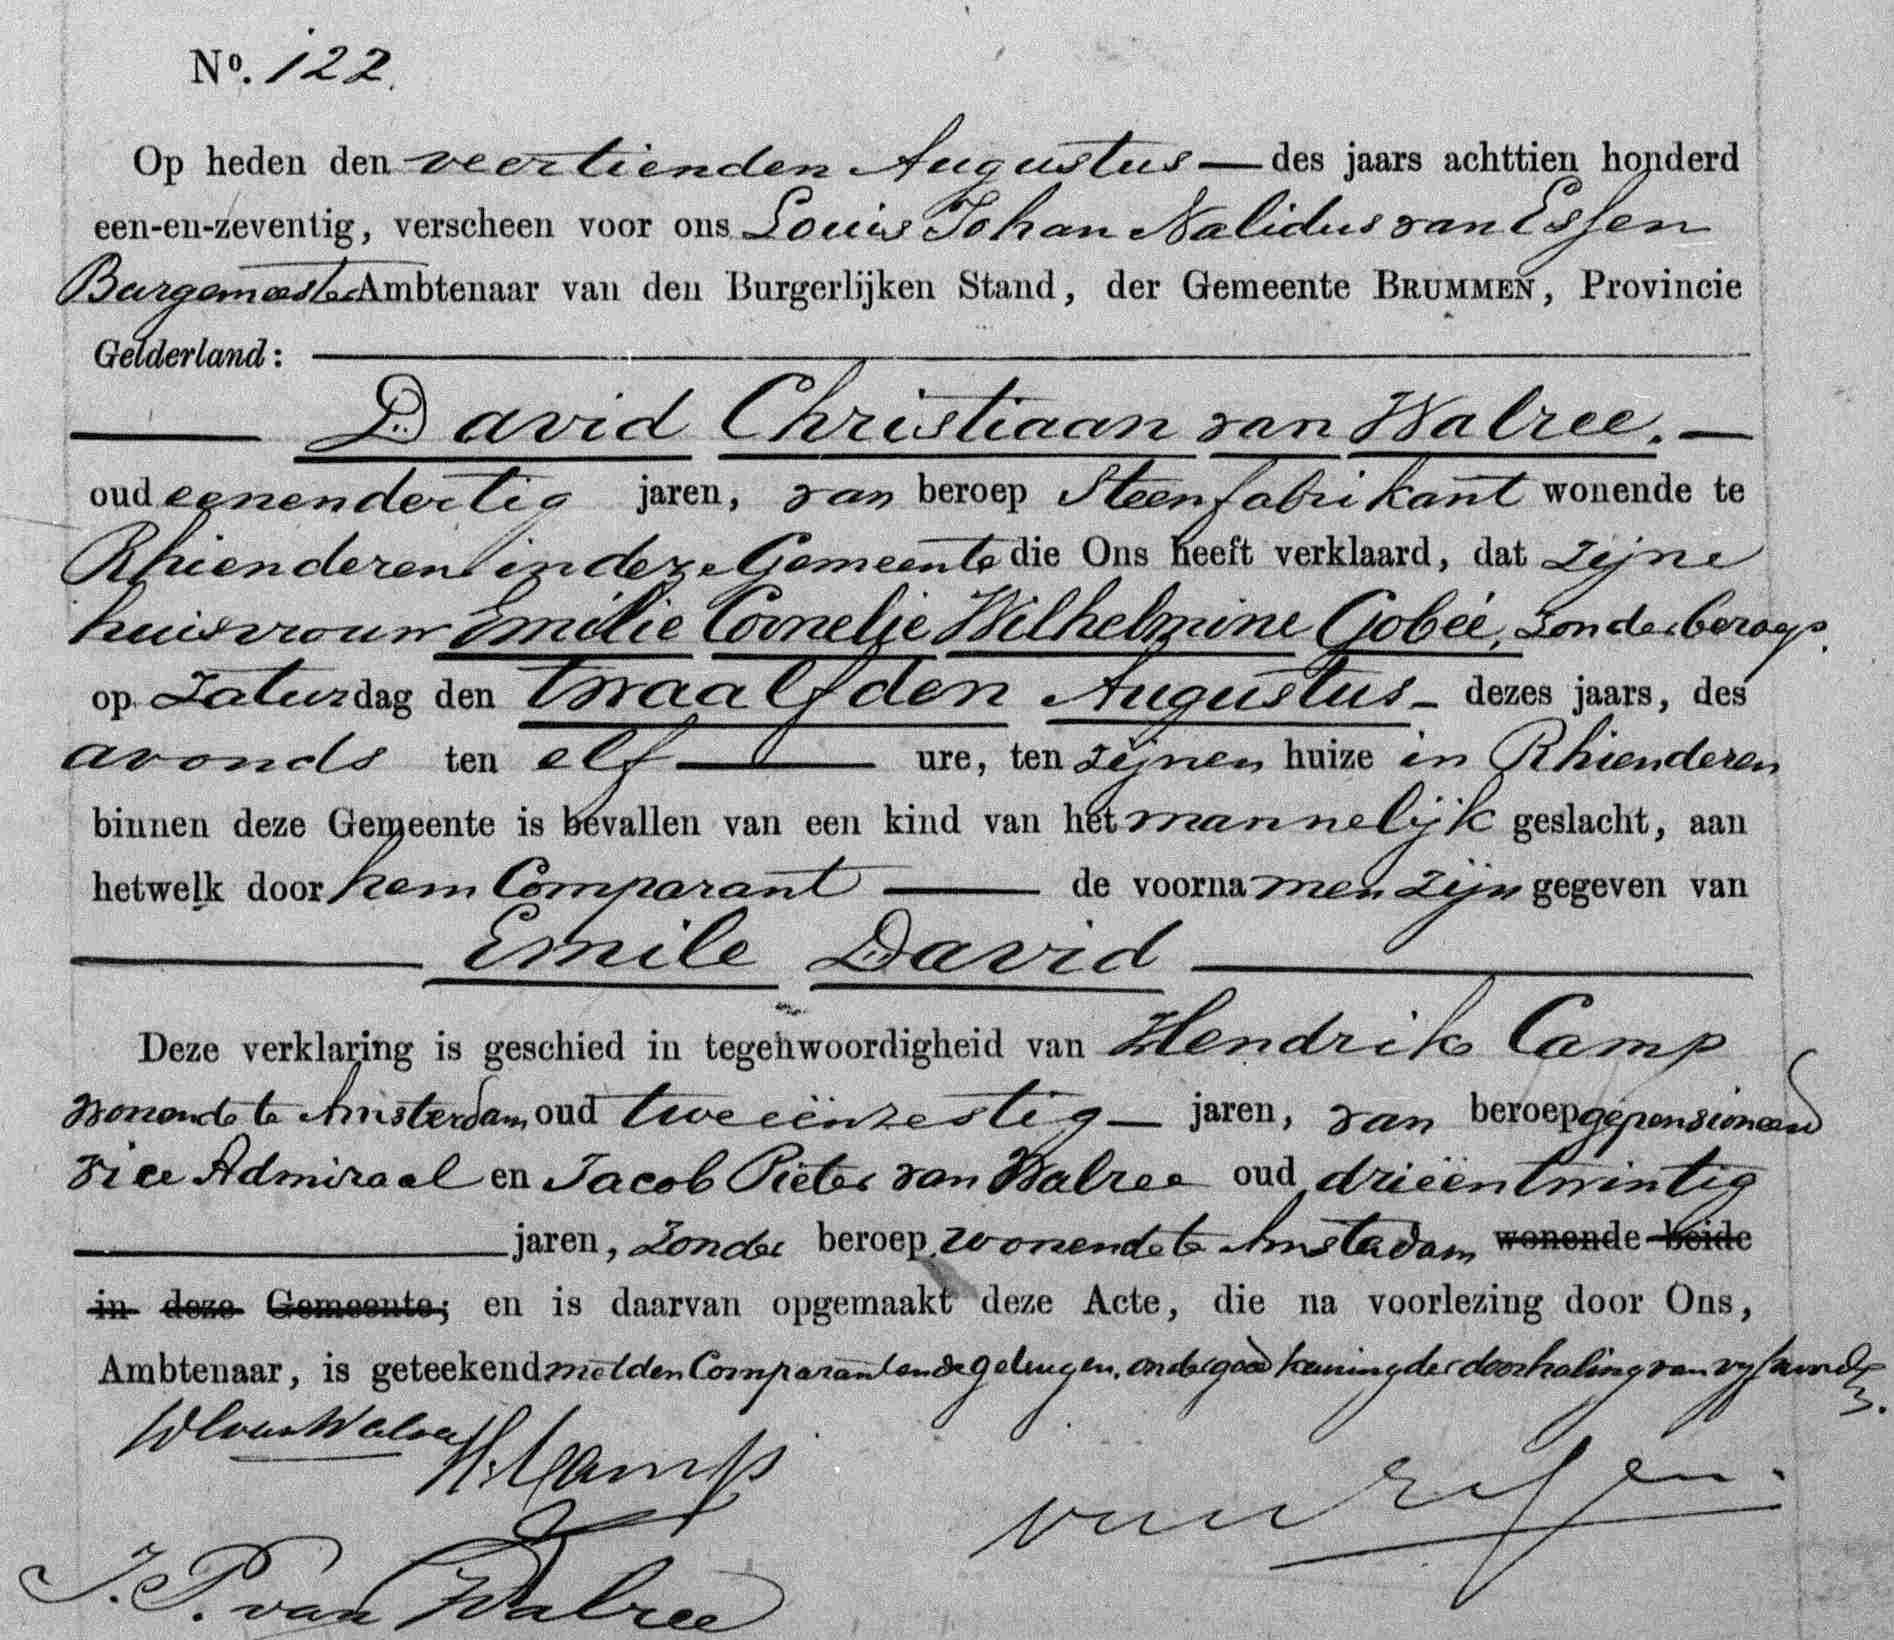 No. 122.
Op heden den veertienden Augustus — des jaars achttien honderd
een-en-zeventig, verscheen voor ons Louis Johan Nalidus van Essen
Burgemeester Ambtenaar van den Burgerlijken Stand, der Gemeente BRUMMEN, Provincie
Gelderland:
David Christiaan van Walree. —
oud eenendertig jaren, van beroep Steenfabrikant wonende te
Rhienderen in deze Gemeente die Ons heeft verklaard, dat zijne
huisvrouw Emilie Cornelie Wilhelmine Gobée, zonder beroep.
op Zaturdag den twaalfden Augustus — dezes jaars, des
avonds ten elf — ure, ten zijnen huize in Rhienderen
binnen deze Gemeente is bevallen van een kind van het mannelijk geslacht, aan
hetwelk door hem Comparant — de voornamen zijn gegeven van
Emile David
Deze verklaring is geschied in tegenwoordigheid van Hendrik Camp
wonende te Amsterdam oud tweeënzestig — jaren, van beroep gepensioneerd
vice Admiraal en Jacob Pieter van Walree oud drieëntwintig
jaren, zonder beroep wonende te Amsterdam wonende beide
in deze Gemeente; en is daarvan opgemaakt deze Acte, die na voorlezing door Ons,
Ambtenaar, is geteekend met den Comparant en de getuigen, onder goedkeuring der doorhaling van vyf woorden.
van Walree
H. Camp
van Essen.
J. P. van Walree